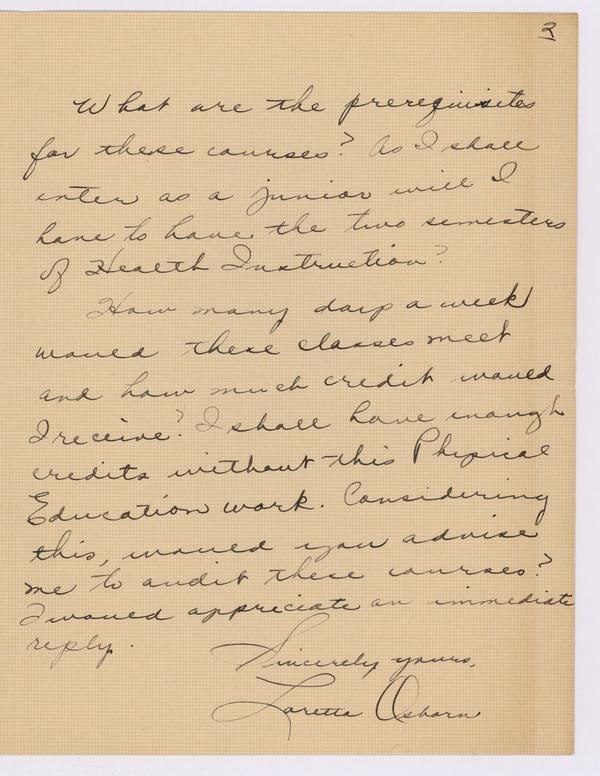 2
What are the prerequisites
for these courses? As I shall
enter as a junior will I
have to have the two semesters
of Health Instruction?
How many days a week
would these classes meet
and how much credit would
I receive? I shall have enough
credits without this Physical
Education work. Considering
this, would you advise
me to audit these courses?
I would appreciate an immediate
reply.
Sincerely yours,
Loretta Osborn